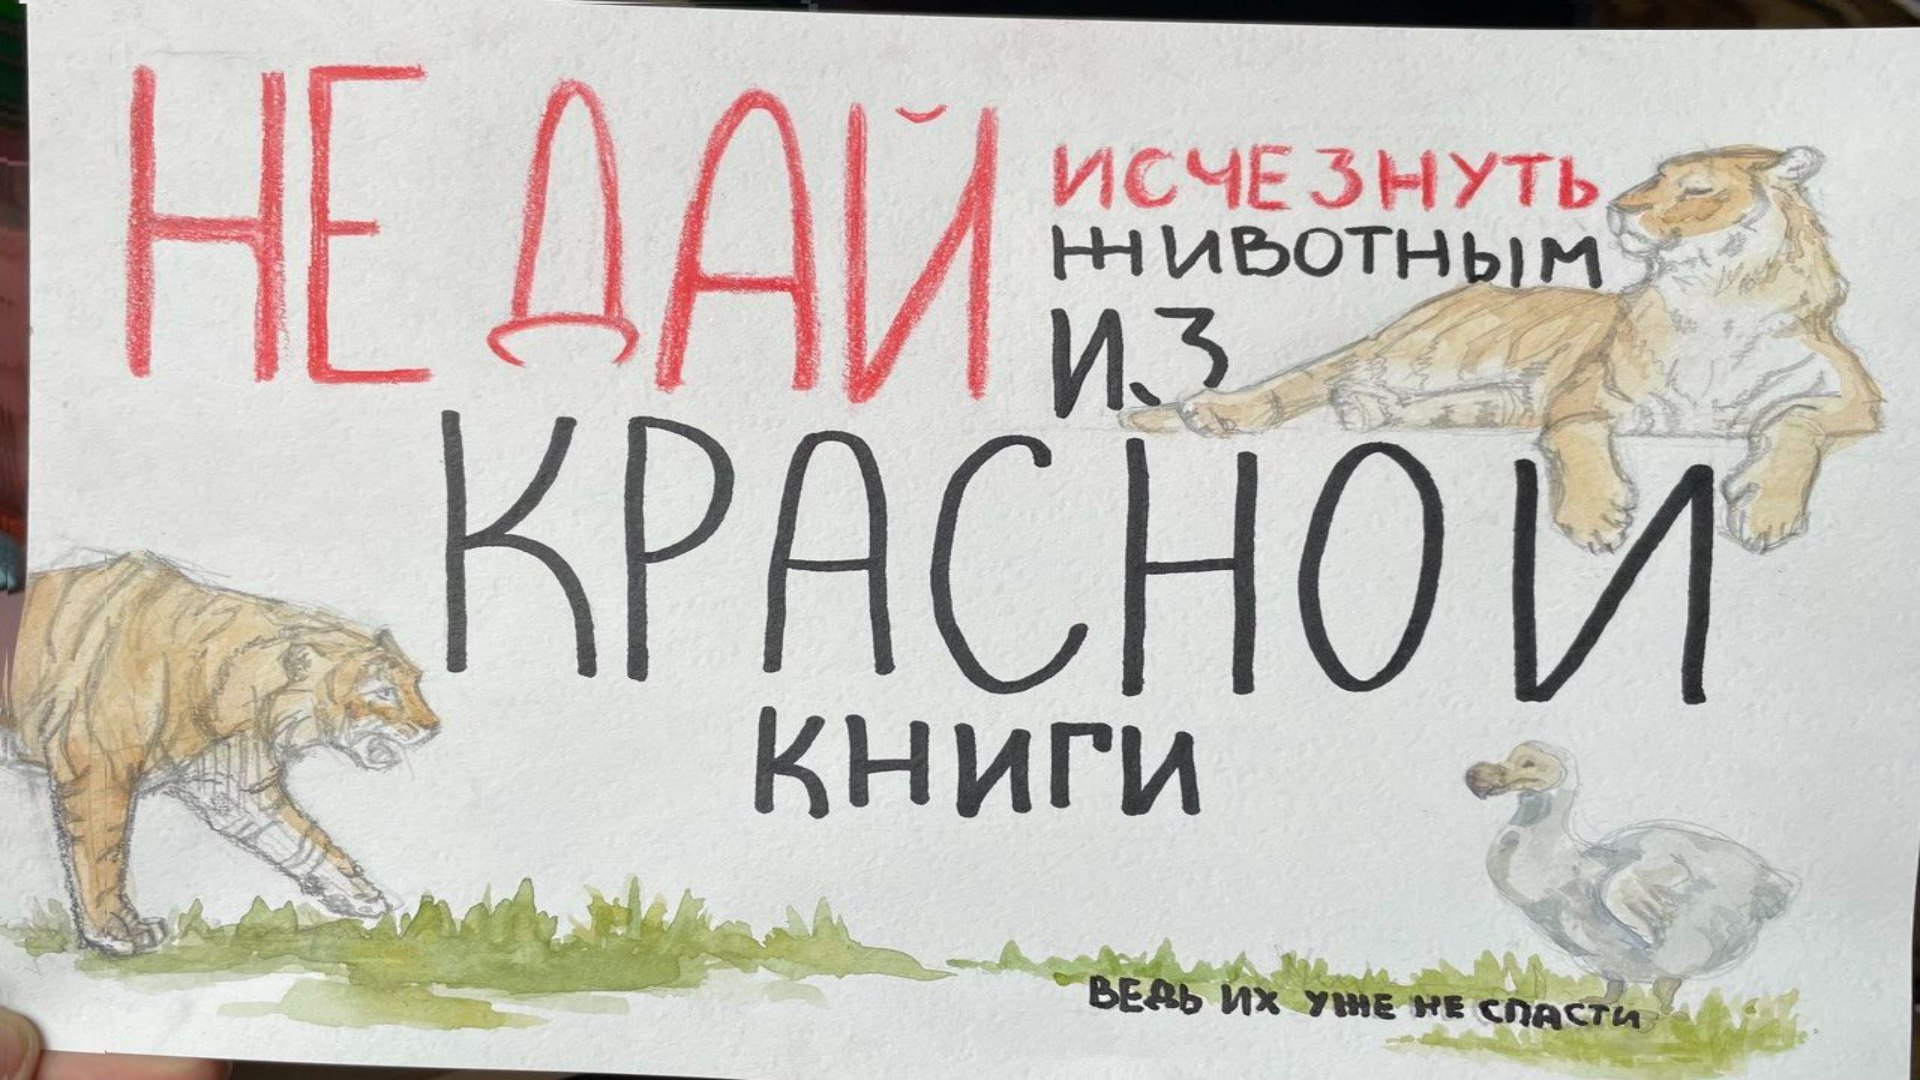 НЕ ДАЙ
ИСЧЕЗНУТЬ
ЖИВОТНЫМ
ИЗ
КРАСНОИ
КНИГИ
ВЕДЬ ИХ УЖЕ НЕ СПАСТИ